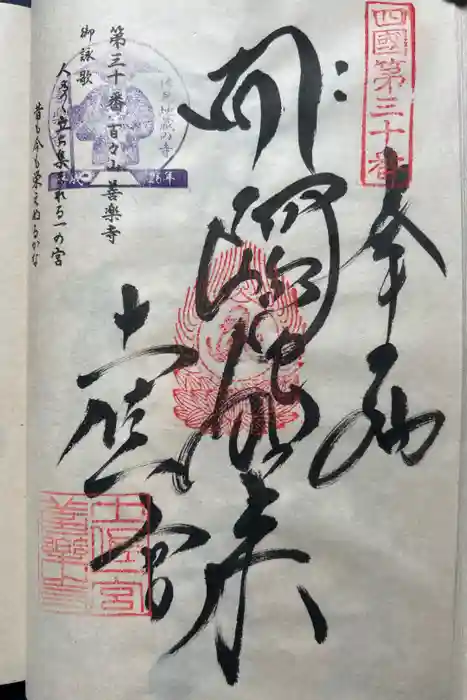 四國第三十番
奉納
阿彌陀如来
土佐壹宮
第三十番 百々山善楽寺
御詠歌
人多く立ち集まれる一の宮
昔も今も栄えぬるかな
26年